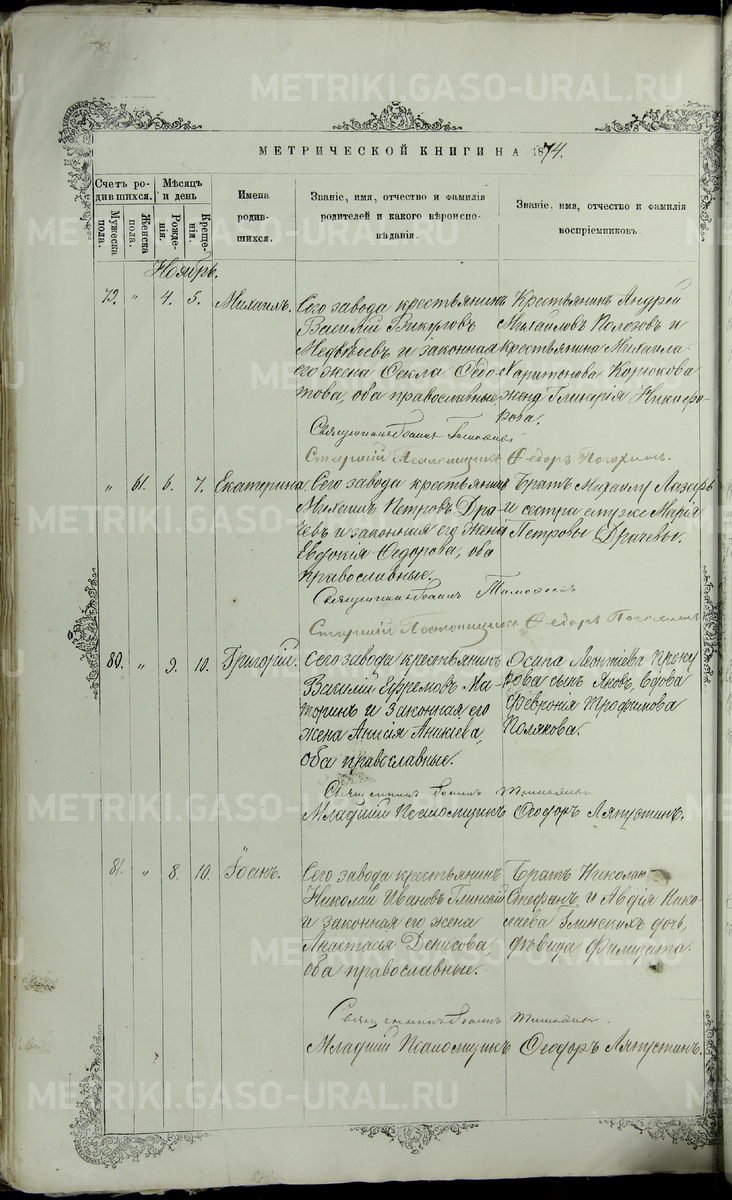 МЕТРИЧЕСКОЙ КНИГИ НА 1874.
Счетъ родившихся.
Мужеска пола.
Женска пола.
Мѣсяцъ и день
Рожденія.
Крещенія.
Имена родившихся.
Званіе, имя, отчество и фамилія
родителей и какого вѣроиспо-
вѣданія.
Званіе, имя, отчество и фамилія
воспріемниковъ.
Ноябрь.
79. " 4. 5. Михаилъ.
Сего завода крестьянинъ
Василій Викуловъ
Медвѣдевъ и законная
его жена Фекла Фео-
това, оба православные.
Крестьянинъ Андрей
Михаиловъ Колозовъ и
крестьянина Михаила
Харитонова Корюкова
жена Гликерія Никифо-
рова.
Священникъ Іоаннъ
Старшій Псаломщикъ Федоръ
" 61. 6. 7. Екатерина.
Сего завода крестьянинъ
Михаилъ Петровъ Дра-
чевъ и законная его жена
Евдокія Федорова, оба
православные.
Братъ Михаилу Лазарь
и сестра ему же Марія
Петровы Драчевы.
Священникъ Іоаннъ
Старшій Псаломщикъ Федоръ
80. " 9. 10. Григорій.
Сего завода крестьянинъ
Василій Ефремовъ Ма-
торинъ и законная его
жена Анисія Аникіева,
оба православные.
Осипа Леонтіева
сынъ Яковъ, вдова
Февронія Трофимова
Полякова.
Священникъ Іоаннъ
Младшій Псаломщикъ Феодоръ Ляпустинъ.
81. " 8. 10. Іоанъ.
Сего завода крестьянинъ
Николай Ивановъ Глинскій
и законная его жена
Анастасія Денисова,
оба православные.
Братъ Николаю
Стефанъ и Авдія Нико-
лаева Глинскихъ дочь,
дѣвица Филицата.
Священникъ Іоаннъ
Младшій Псаломщикъ Феодоръ Ляпустинъ.
METRIKI.GASO-URAL.RU